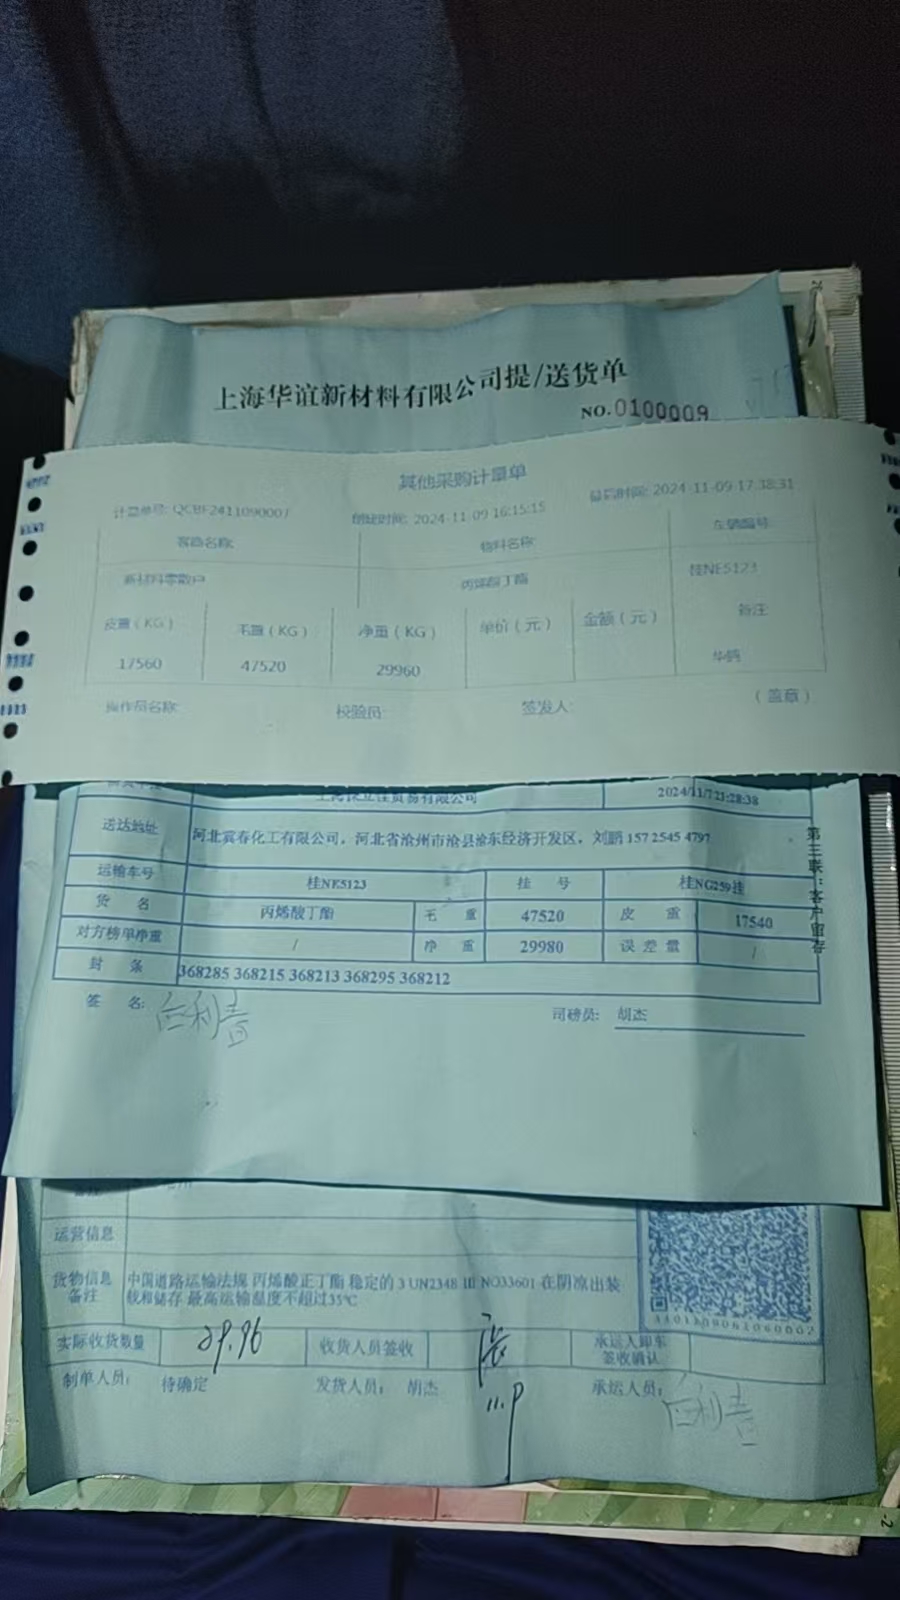 上海华谊新材料有限公司提/送货单
NO.0100009
其他采购计量单
计量单号: QCBF241109000
创建时间: 2024-11-09 16:15:15
2024-11-09 17:38:31
客商名称: 物料名称 车辆编号
新材料零散户 丙烯酸丁酯 桂NE5123
皮重(KG) 毛重(KG) 净重(KG) 单价(元) 金额(元) 备注
17560 47520 29960
操作员名称: 校验员: 签发人: (盖章)
贸易有限公司 2024/11/7 21:28:38
送达地址 河北宾春化工有限公司，河北省沧州市沧县沧东经济开发区，刘鹏 157 2545 4797
运输车号 桂NE5123 挂号 桂NG259挂
货名 丙烯酸丁酯 毛重 47520 皮重 17540
对方榜单净重 / 净重 29980 误差量 /
封条 368285 368215 368213 368295 368212
第三联：客户留存
签名: 司磅员: 胡杰
运营信息
货物信息备注 中国道路运输法规 丙烯酸正丁酯 稳定的 3 UN2348 III NO33601 在阴凉出装
载和储存 最高运输温度不超过35℃
实际收货数量 29.96 收货人员签收 张 承运人卸车签收确认
制单人员: 待确定 发货人员: 胡杰 承运人员: